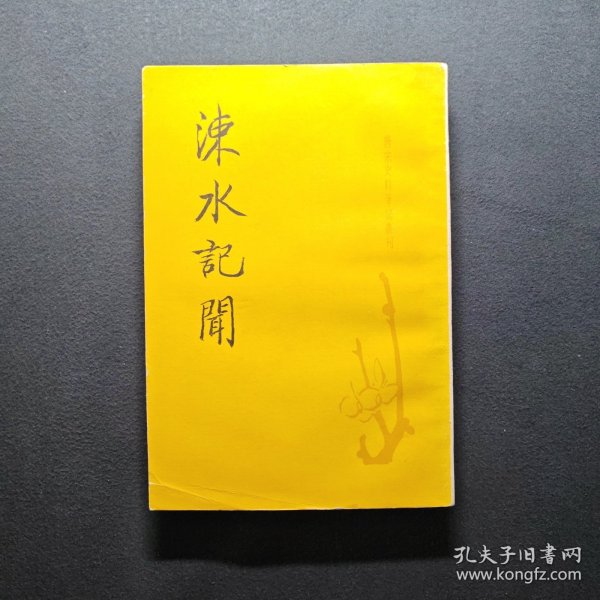 涑水記聞
唐宋史料筆記叢刊
孔夫子旧書网
www.kongfz.com